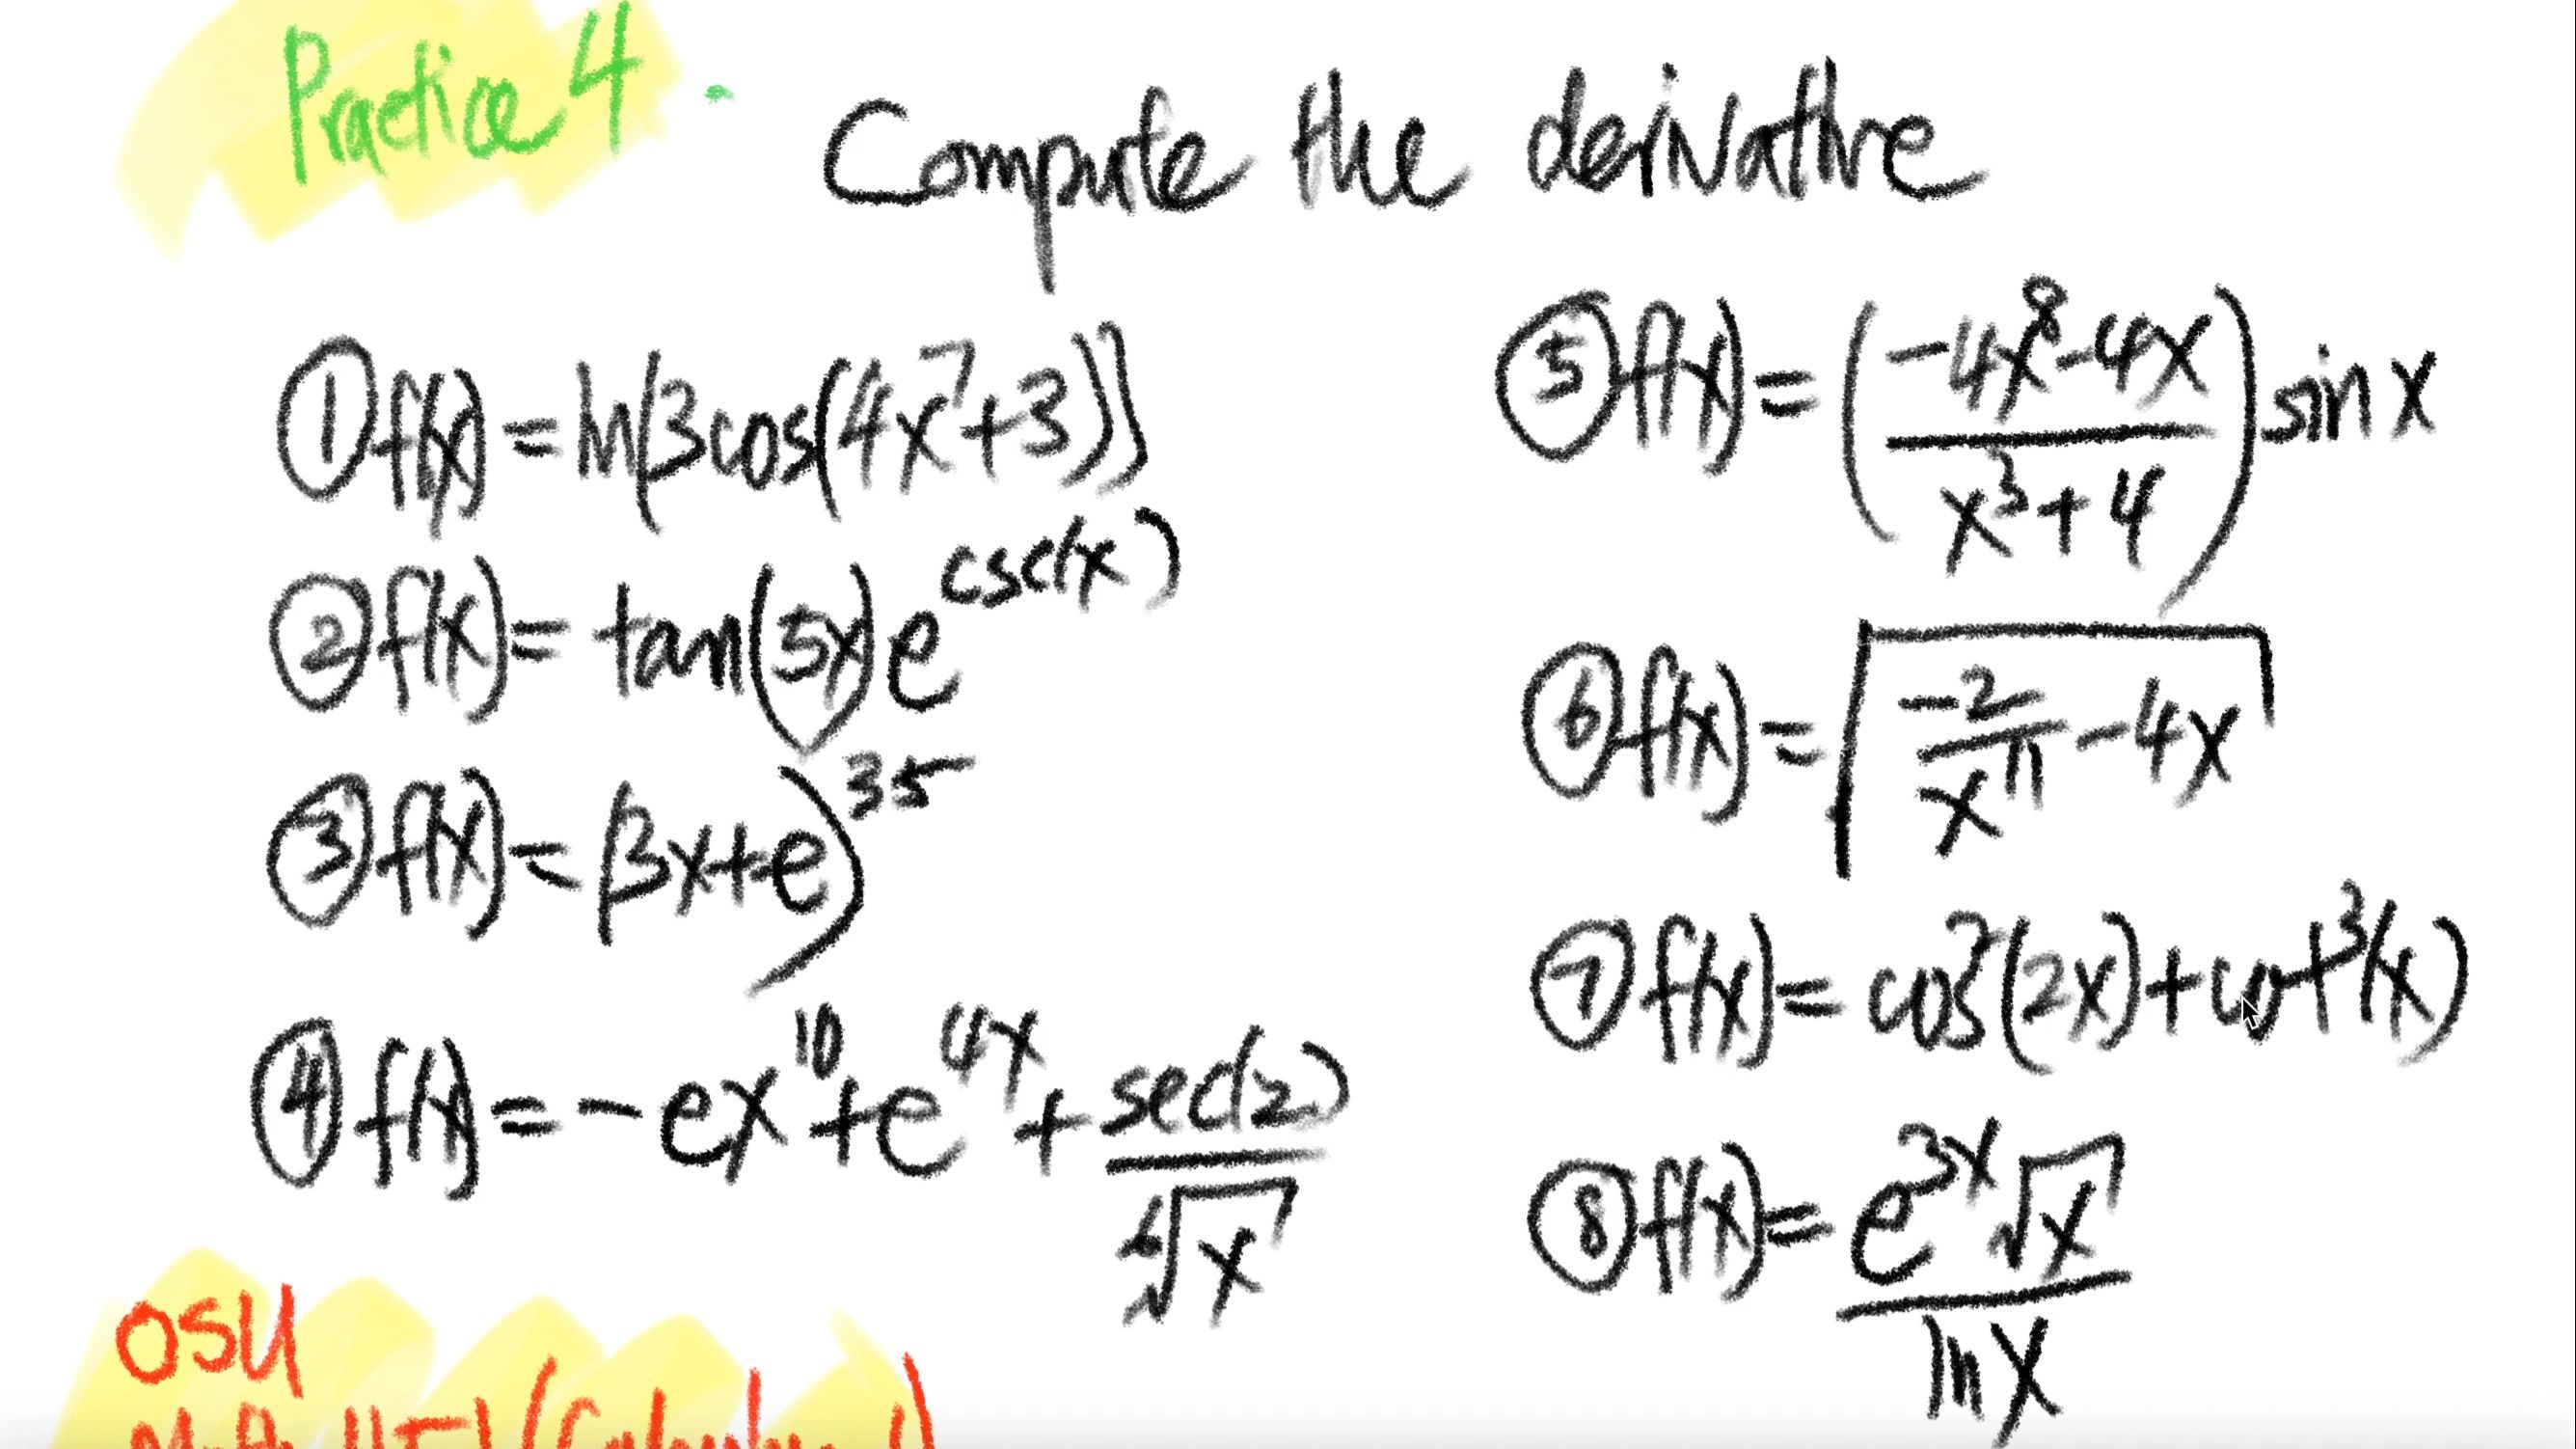 Practice 4. Compute the derivative
① f(x) = ln(3cos(4x⁷+3))
② f(x) = tan(5x) e^csc(x)
③ f(x) = (3x+e)³⁵
④ f(x) = -ex¹⁰ + e^4x + sec(2)/∜x
⑤ f(x) = ((-4x⁸-4x)/(x³+4)) sin x
⑥ f(x) = √(-2/x¹¹ - 4x)
⑦ f(x) = cos²(2x) + cot³(x)
⑧ f(x) = e^3x √x / ln x
OSU